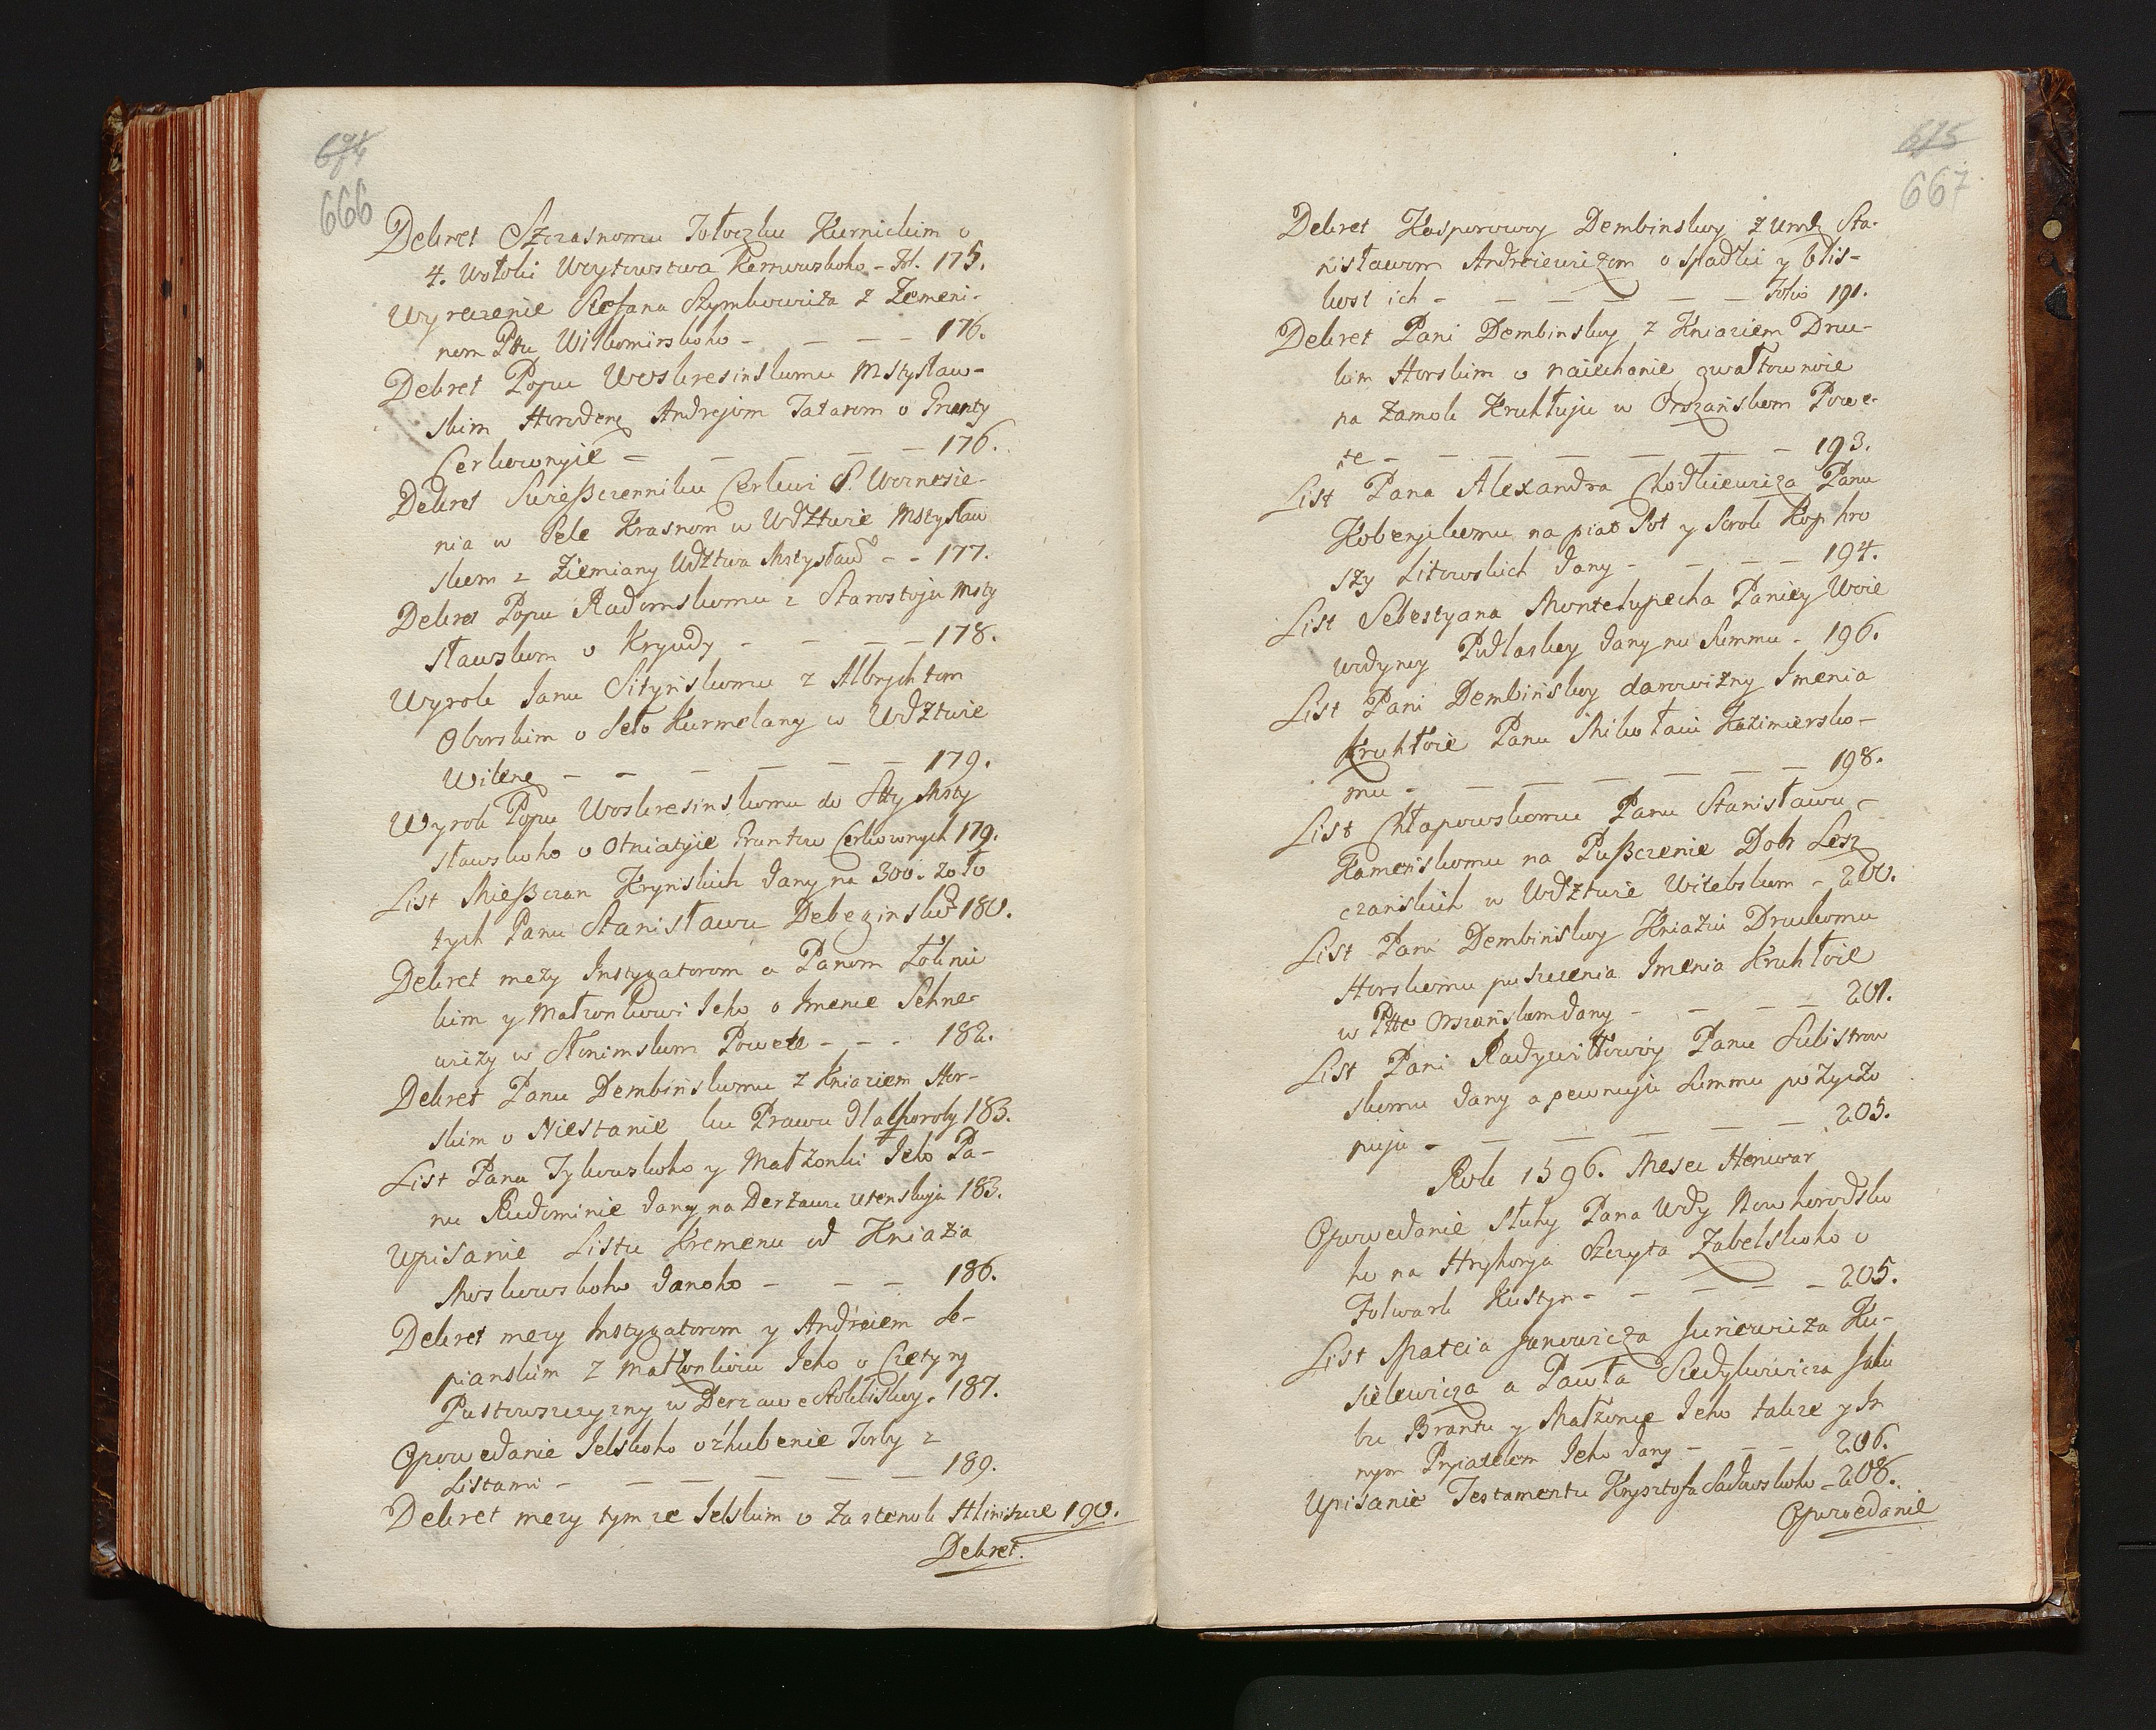 674
666
Dekret Szczasnomu Tołoczku Kurnickim o
4. Wołoki Woytowstwa Kernowskoho - Fol. 175.
Wyreczenie Stefana Szymkowiża z Zemeni-
nom Pttu Wiłkomirskoho - - - - 176.
Dekret Popu Woskresinskomu Mstysław-
skim Horodenʒ Andrejom Tatarom o Grunty
Cerkownyie - - - - - 176.
Dekret Swießczenniku Cerkwi S. Woznesie-
nia w Sele Krasnom w Wdztwie Mstysław
skom z Ziemiany Wdztwa Mstysław - - 177.
Dekret Popu Radomskomu z Starostoju Msty
sławskom o Krywdy - - - - 178.
Wyrok Janu Sityńskomu z Albrychtom
Oborskim o Seło Kurmelany w Wdztwie
Wilenʒ - - - - - - 179.
Wyrok Popu Woskresinskomu do Stty Msty
sławskoho o Otniatyie Gruntow Cerkownych 179.
List Mießczan Krynskich dany na 300. zoło
tych Panu Stanisławu Debeginskoł 180.
Dekret mezy Instygatorom a Panom Łokni
kim y Małzonkowi Jeho o Imenie Sehne-
wizy w Słonimskom Powete - - - 182.
Dekret Panu Dembińskomu z Kniaziem Hor-
skim o Niestanie ku Prawu dla Choroby 183.
List Pana Tykowskoho y Małzonki Jeho Pa-
nu Rudominie dany na Derzawu Utenskuju 183.
Upisanie Listu Kremenu od Kniazia
Moskowskoho danoho - - - 186.
Dekret mezy Instygatorom y Andreiem Le-
pianskim z Małzonkoiu Jeho o Czetyrʒ
Pustowszczyzny w Derzawe Stoklisky. 187.
Opowedanie Jelskoho o zhubenie Torby z
Listami - - - - - - 189.
Dekret mezy tym ze Jelskim o Zastenok Hliniszcze 190.
Dekret.
675
667
Dekret Kasporowoy Dembinskoy z Urodʒ Sta-
nisławom Andreiewiczom o spadki y blis-
kost ich - - - - - - - Folio 191.
Dekret Pani Dembinskoy z Kniaziem Dru-
kim Horskim o naiechanie gwałtownoie
na Zamok Kruhłuju w Orszańskom Powe-
te - - - - - - - 193.
List Pana Alexandra Chodkiewicza Panu
Kobenzskomu na piat Sot y Sorok Kop hro
szy Litowskich dany - - - - 194.
List Sebestyana Montelupecha Paniey Woie
wodynoy Pidlaskey dany na Summu - 196.
List Pani Dembińskoy darowizny Imenia
Kruhłoie Panu Mikołaiu Kazimiersko-
mu - - - - - - - 198.
List Chłapowskomu Panu Stanisławu
Kamenskomu na Pußczenie Dobr Lesz
czanskich w Wdztwie Witebskom - 200.
List Pani Dembinskoy Kniaziu Druckomu
Horskomu puszczenia Imenia Kruhłoie
w Ptte Orszańskom dany - - - - 201.
List Pani Radywiłłowoy Panu Sulistrow
skomu dany a pewnuju Summu pozyczo
nuju - - - - - - 205.
Rok 1596. Mesec Henwar
Opowedanie Słuhy Pana Wdy Nowhorodsko
ho na Hryhorya Szczyta Zabelskoho o
Folwark Kustyn - - - - - 205.
List Ipateia Janowicza Juriewiża Ku-
sielewicza a Pawła Siedykowicza Jaku
bu Brantu y Małzonce Jeho takze y In
nym Pryiatelem Jeho dany - - - 206.
Upisanie Testamentu Krysztofa Sadowskoho - 208.
Opowedanie